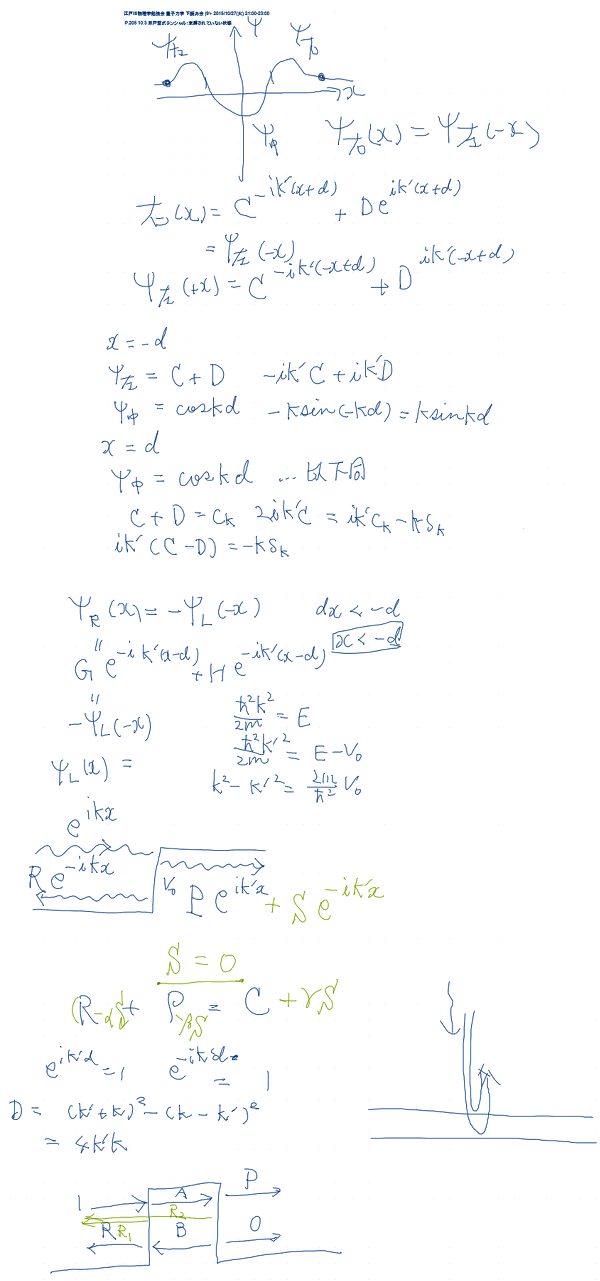 江戸川物理学勉強会 量子力学 下読み会 (9) 2015/10/27(火) 21:00-23:00
P.205 10.3 井戸型ポテンシャル:束縛されていない状態
ψ
ψ左 ψ右
x
ψ中
ψ右(x) = ψ左(-x)
右(x) = C^{-ik'(x+d)} + De^{ik'(x+d)}
= ψ左(-x)
ψ左(+x) = C^{-ik'(-x+d)} + D^{ik'(-x+d)}
x = -d
ψ左 = C + D -ik'C + ik'D
ψ中 = cos kd -k sin(-kd) = k sin kd
x = d
ψ中 = cos kd … 以下同
C + D = C_k 2ik'C = ik'C_k - kS_k
ik'(C - D) = -kS_k
ψ_R(x) = -ψ_L(-x) dx < -d
x < -d
"
G e^{-ik'(x-d)} + H e^{-ik'(x-d)}
"
-ψ_L(-x) ħ²k²/2m = E
ħ²k'²/2m = E - V₀
ψ_L(x) = k² - k'² = 2m/ħ² V₀
e^{ikx}
R e^{-ikx} V₀ P e^{ik'x} + S e^{-ik'x}
S = 0
(R-αS) + P_{γβS} = C + γS
e^{ik'd} = 1 e^{-ik'd} = 1
D = (k'+k)² - (k-k')²
= 4k'k
1 A P
R₂
R R₁ B 0